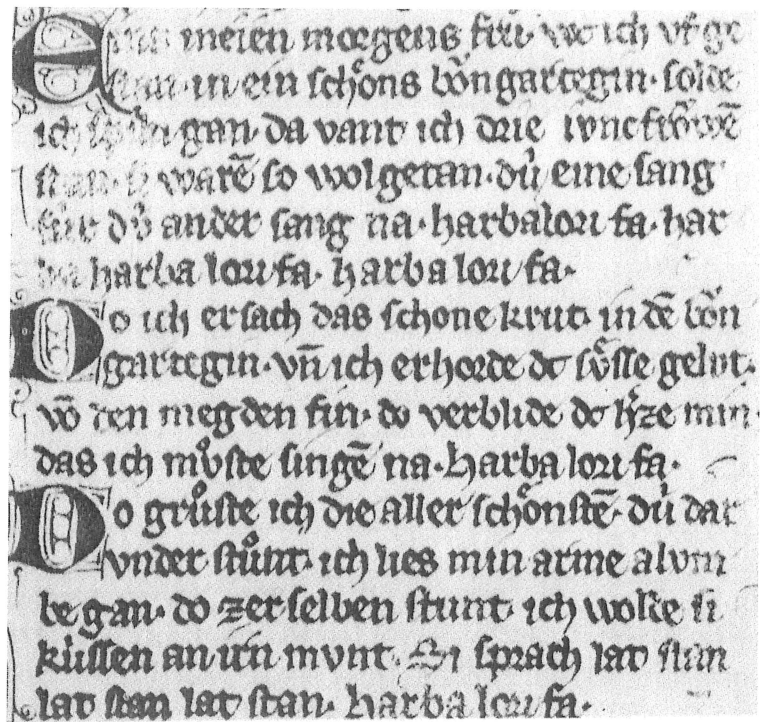 Eins meien morgens frů wc ich vf ge
stan · in ein schͦons bͦongartegin · solde
ich spiln gan · da vant ich drie ivncfrͦowē
stan · si warē so wolgetan · dů eine sang
fůr dů ander sang na · harbalori fa · har
ba harba lori fa · harba lori fa ·
Do ich ersach das schone krut · in dē bͦon
gartegin · vn̄ ich erhorde dc sͦosse gelvt ·
vō den megden fin · do verblide dc h̾ze min ·
das ich mͦvste singē na · Harba lori fa ·
Do grůste ich die aller schͦonstē · dů dar
vnder stůnt · ich lies min arme al vm
be gan · do zer selben stunt · ich wolde si
kússen an irn mvnt · Si sprach lat stan
lat stan lat stan · harba lori fa ·